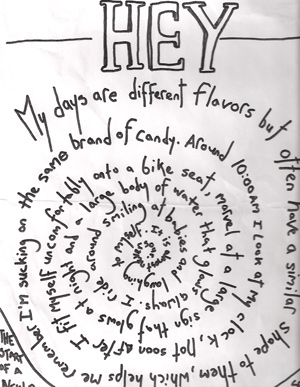 HEY
My days are different flavors but often have a similar shape to them, which helps me remember I'm sucking on the same
brand of candy. Around 10:00am I look at my clock, not soon after I fit myself uncomfortably
onto a bike seat, marvel at a large sign that glows at night and a large body of water that glows always. I ride around
smiling at babies and laughing to myself. It is
THE
START
OF A